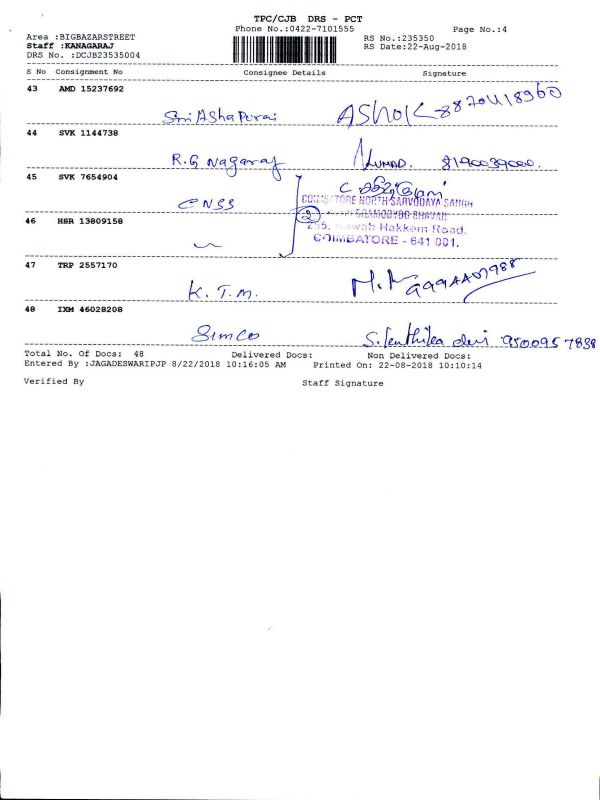 TPC/CJB DRS - PCT
Phone No.:0422-7101555 Page No.:4
Area :BIGBAZARSTREET RS No.:235350
Staff :KANAGARAJ RS Date:22-Aug-2018
DRS No. :DCJB23535004
S No Consignment No Consignee Details Signature
43 AMD 15237692
Sri Ashapurai ASHOK 8870418960
44 SVK 1144738
R.G Nagaraj KUMAR. 8190039000.
45 SVK 7654904
CNSS
COIMBATORE NORTH SARVODAYA SANGH
2 GRAMODYOG BHAVAN
46 HSR 13809158
255, Nawab Hakkem Road,
COIMBATORE - 641 001.
47 TRP 2557170
K.T.M.
48 IXM 46028208
SIMCO S. Senthilea devi 9500957838
Total No. Of Docs: 48 Delivered Docs: Non Delivered Docs:
Entered By :JAGADESWARIPJP 8/22/2018 10:16:05 AM Printed On: 22-08-2018 10:10:14
Verified By Staff Signature